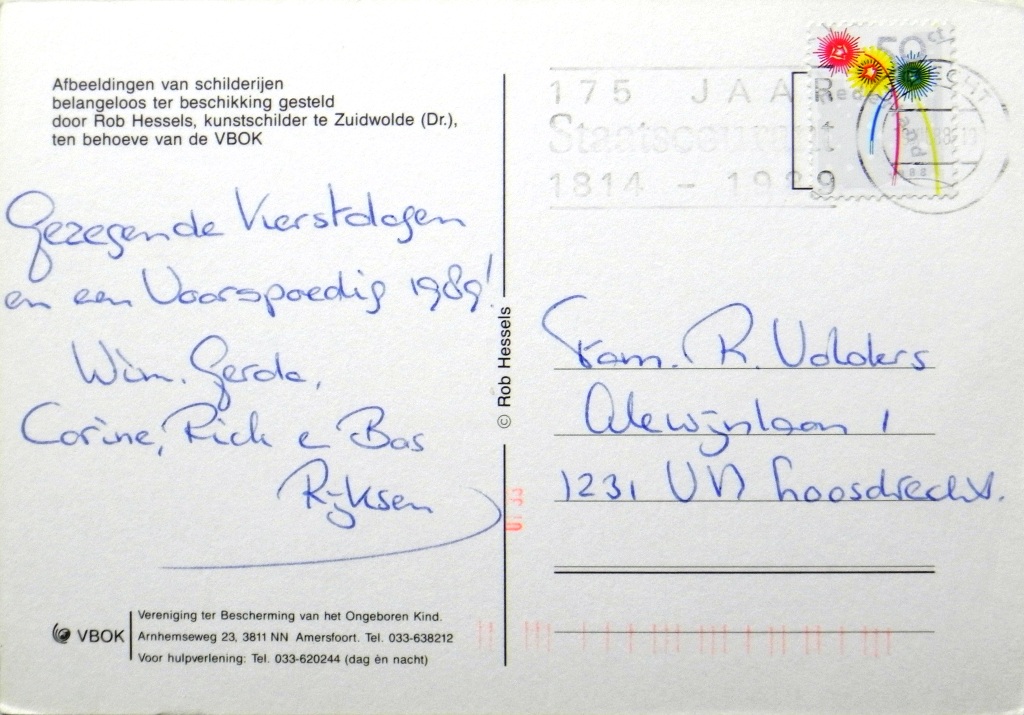 Afbeeldingen van schilderijen
belangeloos ter beschikking gesteld
door Rob Hessels, kunstschilder te Zuidwolde (Dr.),
ten behoeve van de VBOK
Gezegende Kerstdagen
en een Voorspoedig 1989!
Wim. Gerda,
Corine, Rick e Bas
Rijksen
VBOK
Vereniging ter Bescherming van het Ongeboren Kind.
Arnhemseweg 23, 3811 NN Amersfoort. Tel. 033-638212
Voor hulpverlening: Tel. 033-620244 (dag èn nacht)
© Rob Hessels
175 JAAR
Staatscourant
1814 - 1989
50ct
Fam. R. Volders
Alewijnlaan 1
1231 VN Loosdrecht.